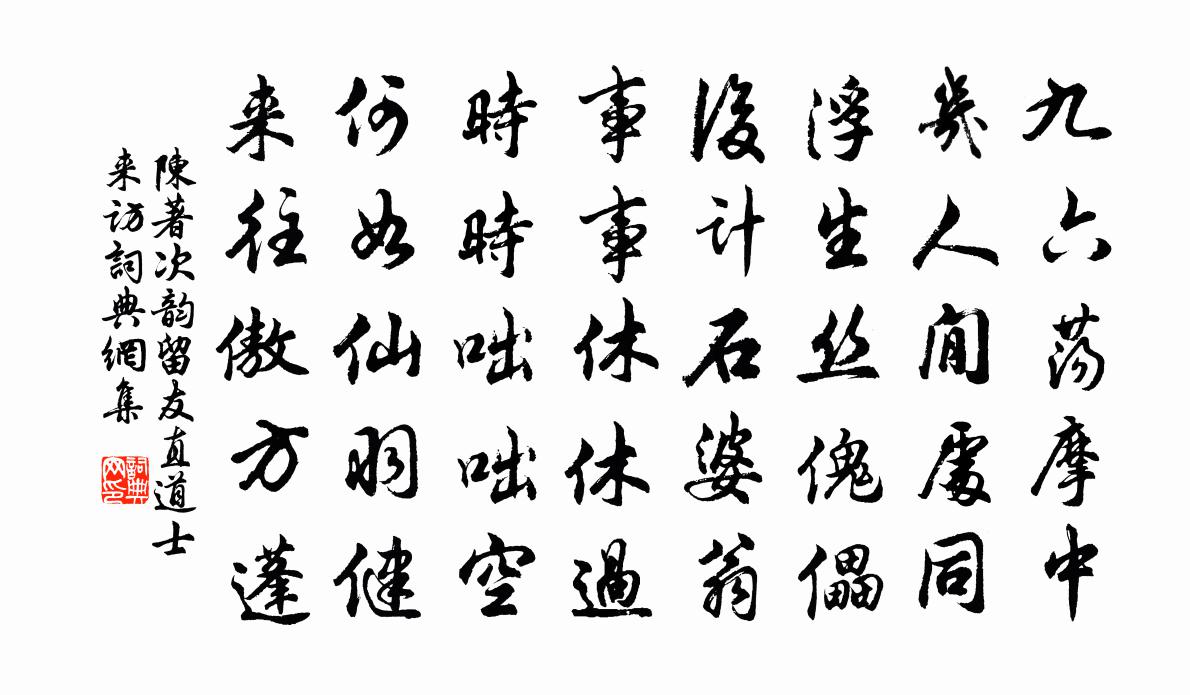 九六荡摩中
幾人閒處同
浮生丝傀儡
後计石婆翁
事事休休過
時時咄咄空
何如仙羽健
来往傲方蓬
陳著次韵留友直道士
来访詞典網集
詞典
网印